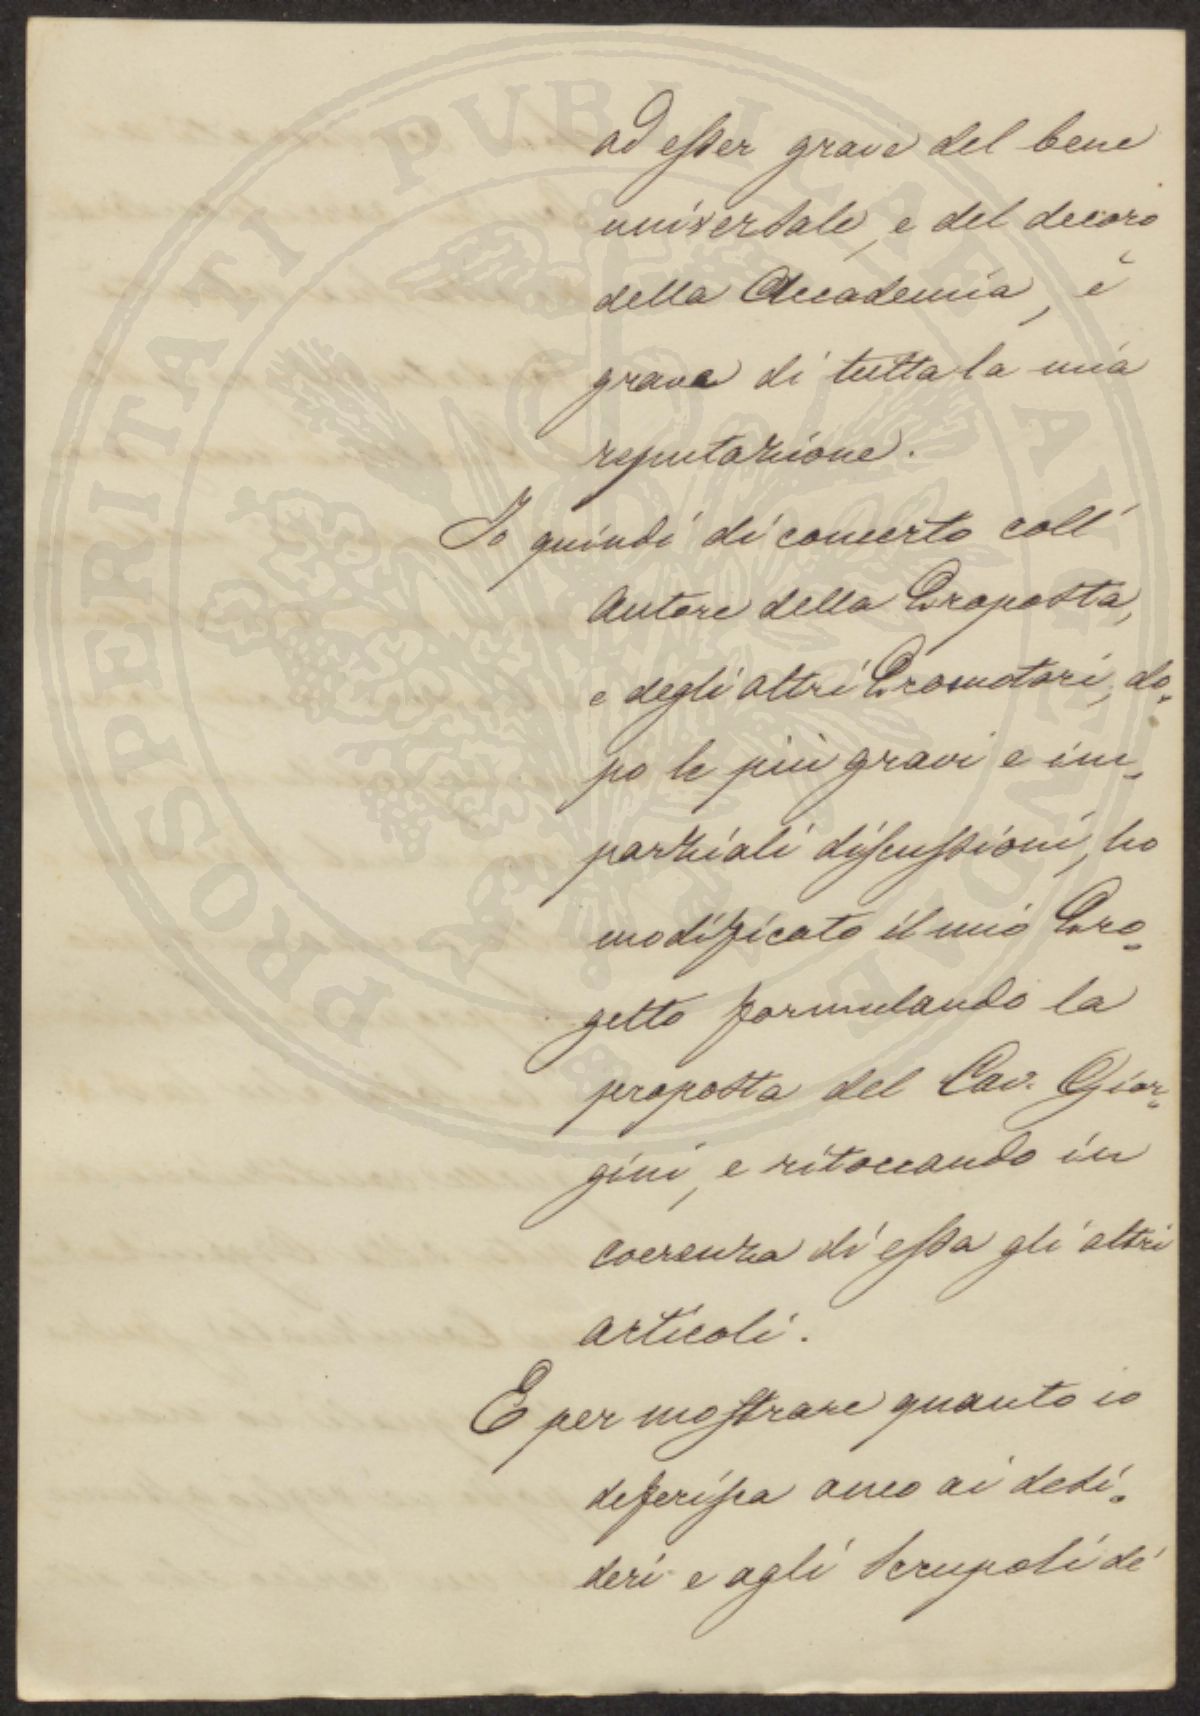 ad esser grave del bene
universale, e del decoro
della Accademia, è
grave di tutta la mia
reputazione.
Io quindi di concerto coll'
Autore della Proposta,
e degli altri Promotori, do=
po le più gravi e im=
parziali discussioni, ho
modificato il mio Pro=
getto formulando la
proposta del Cav. Gior=
gini, e ritoccando in
coerenza di essa gli altri
articoli.
E per mostrare quanto io
deferisca anco ai desi=
deri e agli scrupoli di
PROSPERITATI PVBLICAE AVGENDAE